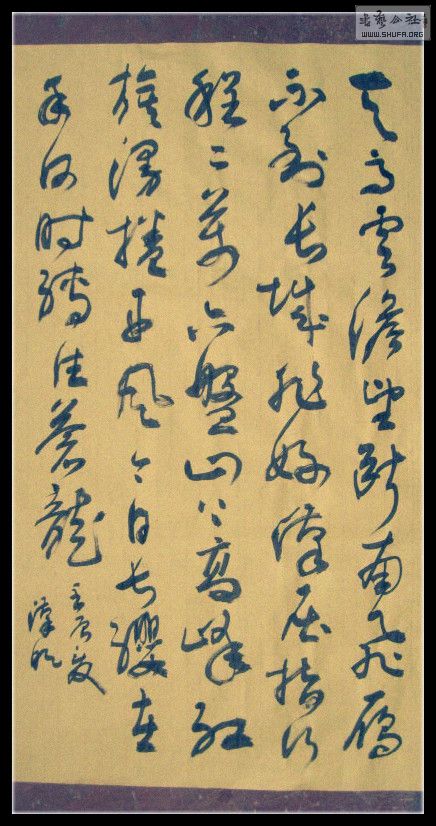 天高雲澹望斷南飛雁
不到長城非好漢屈指行
程二萬六盤山上高峰紅
旗漫捲西風今日長纓在
手何時縛住蒼龍
书艺公社
WWW.SHUFA.ORG